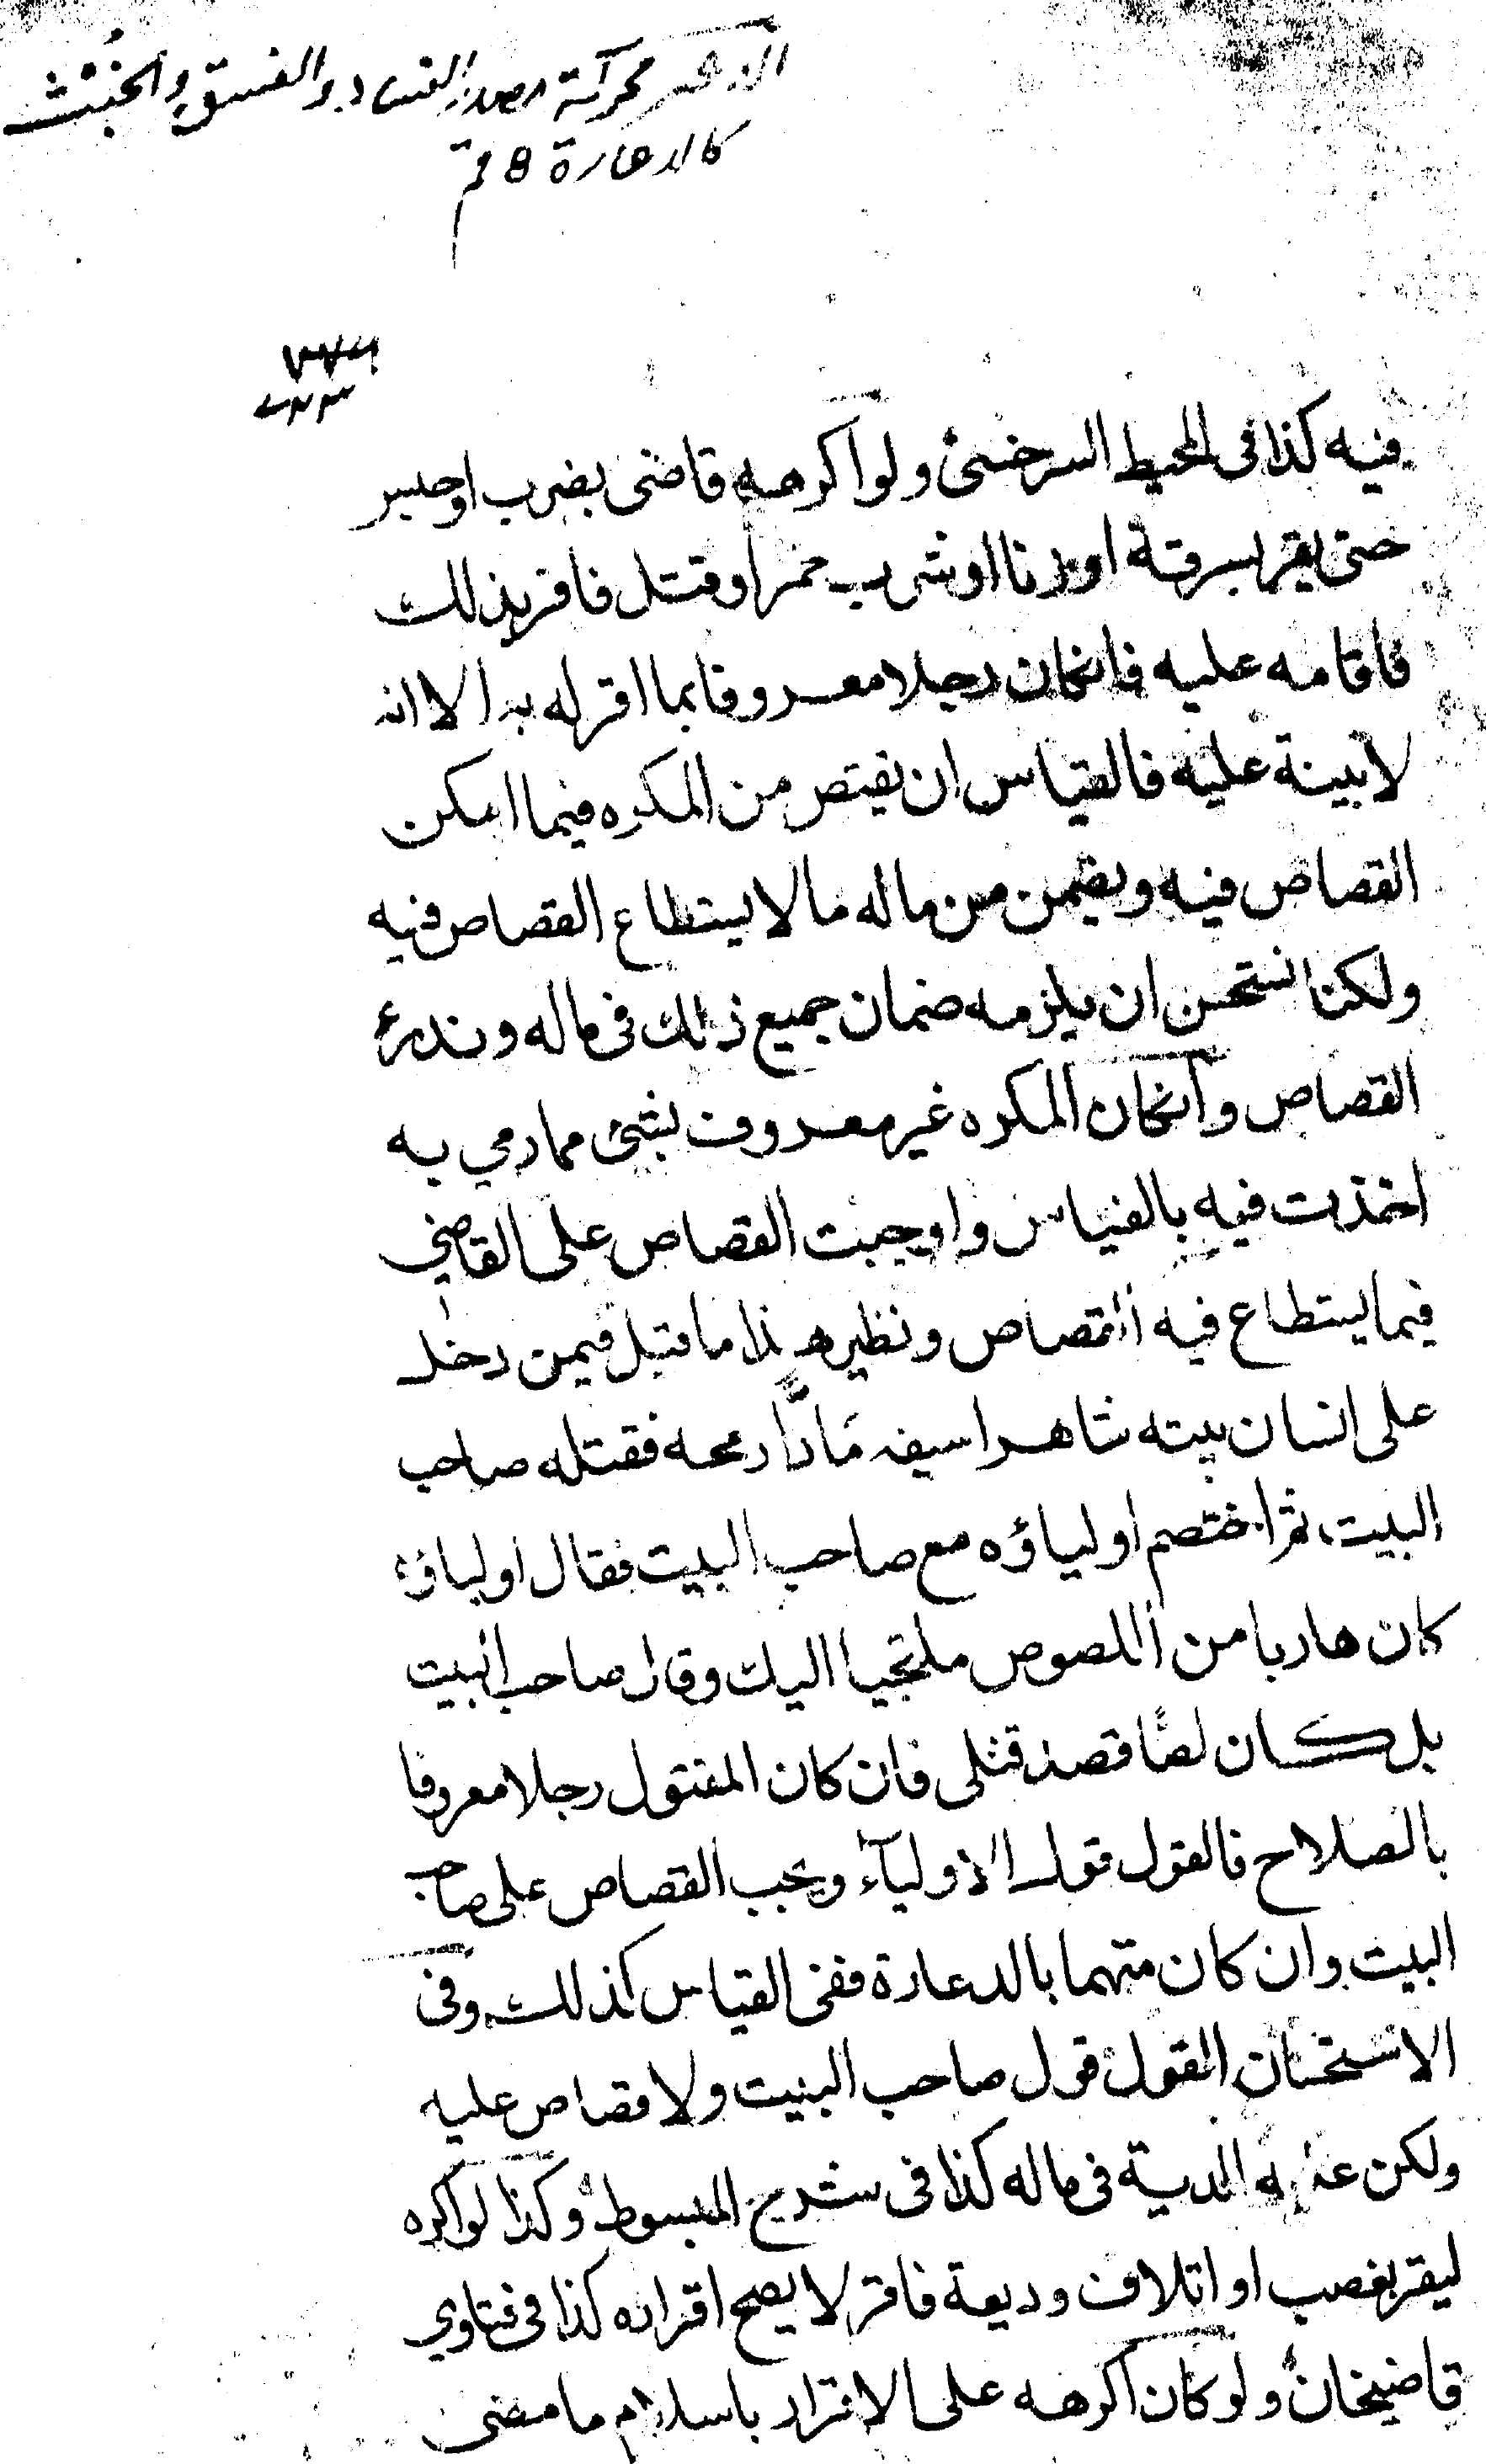 محركة مصدر الفساد والفسق والخبث
كالدعارة
فيه كذا فى المحيط السرخسى ولو اكرهه قاضى بضرب او حبس
حتى يقر بسرقة او زنا او شرب خمر او قتل فاقر بذلك
فاقامه عليه فانكان رجلا معروفا بما اقر له به الا انه
لا بينة عليه فالقياس ان يقتص من المكره فيما امكن
القصاص فيه ويضمن من ماله ما لا يستطاع القصاص فيه
ولكنا نستحسن ان يلزمه ضمان جميع ذلك فى ماله وندرء
القصاص وانكان المكره غير معروف بشئ مما رمي به
اخذت فيه بالقياس واوجبت القصاص على القاضي
فيما يستطاع فيه القصاص ونظير هذا ما قيل فيمن دخل
على انسان بيته شاهرا سيفه مَادًّا رمحه فقتله صاحب
البيت ثم اختصم اولياؤه مع صاحب البيت فقال اولياؤه
كان هاربا من اللصوص ملتجيا اليك وقال صاحب البيت
بل كان لصا قصد قتلى فان كان المقتول رجلا معروفا
بالصلاح فالقول قول الاولياء ويجب القصاص على صاحب
البيت وان كان متهما بالدعارة ففى القياس كذلك وفى
الاستحسان القول قول صاحب البيت ولا قصاص عليه
ولكن عليه الدية فى ماله كذا فى شرح المبسوط وكذا لو اكره
ليقر بغصب او اتلاف وديعة فاقر لا يصح اقراره كذا فى فتاوي
قاضيخان ولو كان اكرهه على الاقرار باسلام ما مضى